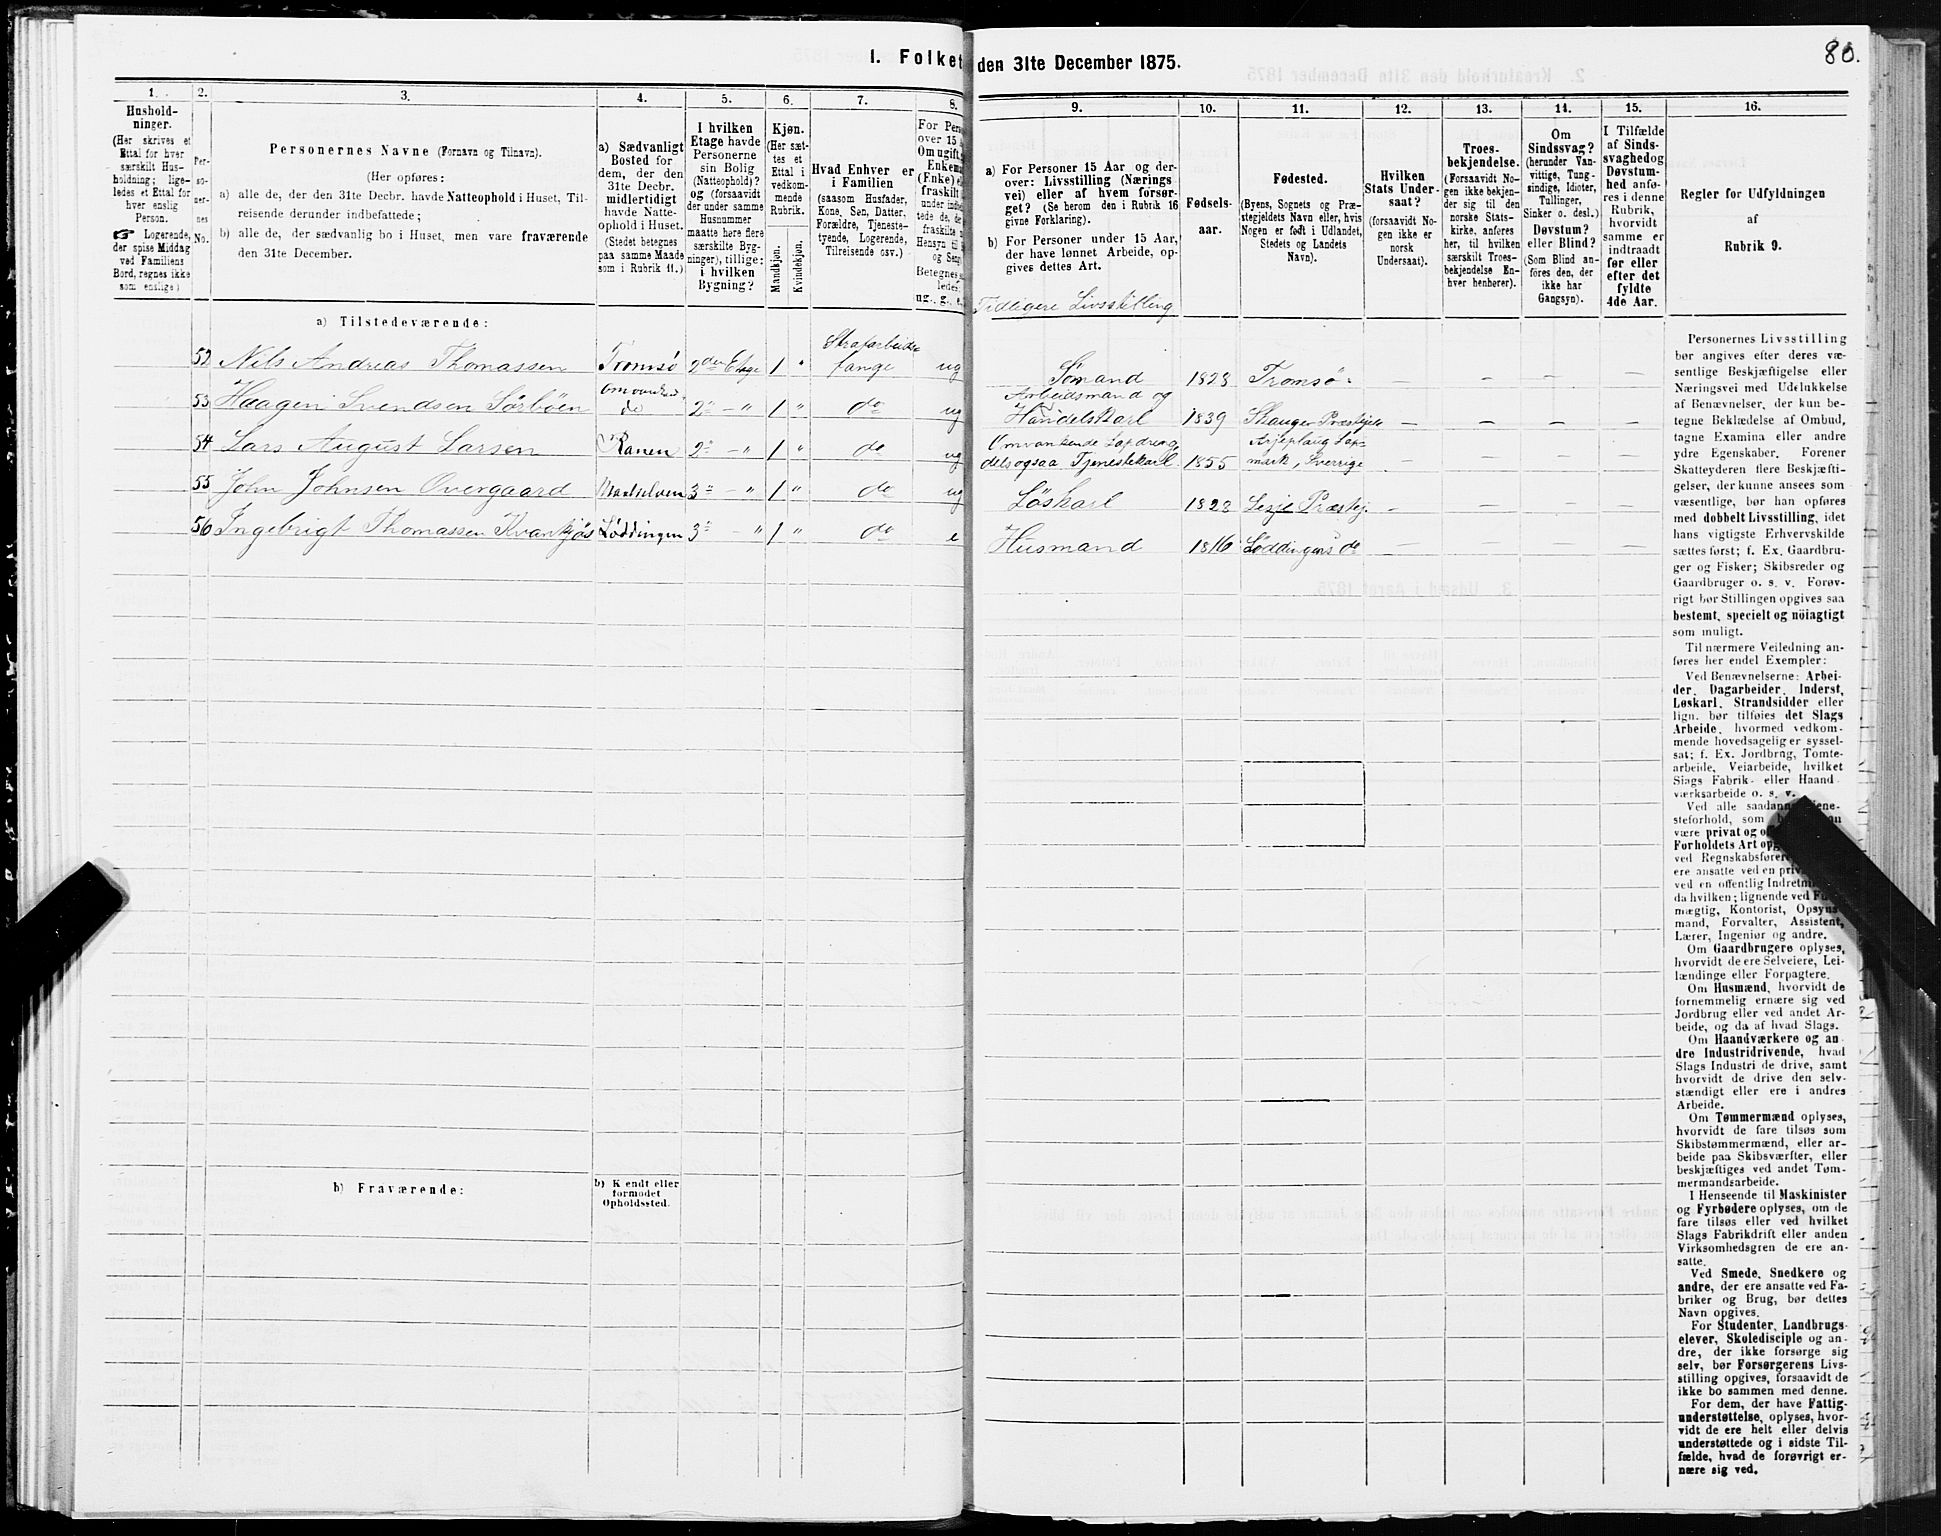 80.
I. Folket
den 31te December 1875.
1.
2.
3.
4.
5.
6.
7.
8.
9.
10.
11.
12.
13.
14.
15.
16.
Hushold-
ninger.
(Her skrives et
Ettal for hver
særskilt Hus-
holdning; lige-
ledes et Ettal for
hver enslig
Person.
☞ Logerende,
der spise Middag
ved Familiens
Bord, regnes ikke
som enslige)
Per-
so-
ner-
nes
No.
Personernes Navne (Fornavn og Tilnavn).
(Her opføres:
a) alle de, der den 31te Decbr. havde Natteophold i Huset, Til-
reisende derunder indbefattede;
b) alle de, der sædvanlig bo i Huset, men vare fraværende
den 31te December.
a) Sædvanligt
Bosted for
dem, der den
31te Decbr.
midlertidigt
havde Natte-
ophold i Huset.
(Stedet betegnes
paa samme Maade
som i Rubrik 11.)
I hvilken
Etage havde
Personerne
sin Bolig
(Natteophold)?
og (forsaavidt
der under samme
Husnummer
maatte høre flere
særskilte Byg-
ninger), tillige:
i hvilken
Bygning?
Kjøn.
(Her sæt-
tes et
Ettal i
vedkom-
mende
Rubrik.
Mandkjøn.
Kvindekjøn.
Hvad Enhver er
i Familien
(saasom Husfader,
Kone, Søn, Datter,
Forældre, Tjeneste-
tyende, Logerende,
Tilreisende osv.)
For Pers
over 15 A
Om ugift,
Enkem
(Enke) e
fraskilt
under indb
tede de, d
fraskilte
Hensyn til
og Seng
Betegnes
ledes
ug., g., e.
a) For Personer 15 Aar og der-
over: Livsstilling (Nærings
vei) eller af hvem forsør-
get? (Se herom den i Rubrik 16
givne Forklaring).
b) For Personer under 15 Aar,
der have lønnet Arbeide, op-
gives dettes Art.
Tidligere Livsstilling
Fødsels-
aar.
Fødested.
(Byens, Sognets og Præ-
stegjeldets Navn eller, hvis
Nogen er født i Udlandet,
Stedets og Landets
Navn).
Hvilken
Stats Under-
saat?
(forsaavidt No-
gen ikke er
norsk
Undersaat).
Troes-
bekjendelse.
(Forsaavidt No-
gen ikke bekjen-
der sig til den
norske Stats-
kirke, anføres
her, til hvilken
særskilt Troes-
bekjendelse En-
hver henhører).
Om
Sindssvag?
(herunder Van-
vittige, Tung-
sindige, Idioter,
Tullinger,
Sinker o. desl.)
Døvstum?
eller Blind?
(Som Blind an-
føres den, der
ikke har
Gangsyn).
I Tilfælde
af Sinds-
svaghed og
Døvstum-
hed anfø-
res i denne
Rubrik,
hvorvidt
samme er
indtraadt
før eller
efter det
fyldte
4de Aar.
Regler for Udfyldningen
af
Rubrik 9.
a) Tilstedeværende:
52 Nils Andreas Thomassen Tromsø 2den Etage 1 " Strafarbeids-fange ug Sømand 1828 Tromsø. — — — —
53 Haagen Svendsen Sørbøen omvankende 2 – " 1 " do ug Arbeidsmand og Handelskarl 1839 Skauger Præstegjeld — — — —
54 Lars August Larsen Ranen 2 – " 1 " do ug Omvankende Lapdreng dels ogsaa Tjenestekarl 1855 Arjeplaug Lapmark, Sverrige — — — —
55 John Johnsen Overgaard Maalselven 3 – " 1 " do ug Løskarl 1828 Lesje Præstej. — — — —
56 Ingebrigt Thomassen Kvankjøs Løddingen 3 – " 1 " do e Husmand 1816 Løddingens do — — — —
b) Fraværende:
b) Kendt eller
formodet
Opholdssted.
Personernes Livsstilling
bør angives efter deres væ-
sentlige Beskjæftigelse eller
Næringsvei med Udelukkelse
af Benævnelser, der kun be-
tegne Beklædelse af Ombud,
tagne Examina eller andre
ydre Egenskaber. Forener
Skatteyderen flere Beskjæfti-
gelser, der kunne ansees som
væsentlige, bør han opføres
med dobbelt Livsstilling, idet
hans vigtigste Erhvervskilde
sættes først; f. Ex. Gaardbru-
ger og Fisker; Skibsreder og
Gaardbruger o. s. v. Forøv-
rigt bør Stillingen opgives saa
bestemt, specielt og nöiagtigt
som muligt.
Til nærmere Veiledning an-
føres her endel Exempler:
Ved Benævnelserne: Arbei-
der, Dagarbeider, Inderst,
Løskarl, Strandsidder eller
lign. bør tilføies det Slags
Arbeide, hvormed vedkom-
mende hovedsagelig er syssel-
sat; f. Ex. Jordbrug, Tomte-
arbeide, Veiarbeide, hvilket
Slags Fabrik- eller Haand
værksarbeide o. s. v.
Ved alle saadann jene-
steforhold, som b an
være privat og o
Forholdets Art op
ved Regnskabsfører
ere ansatte ved en priv
ved en offentlig Indretni
da hvilken; lignende ved Fu
mægtig, Kontorist, Opsyns-
mand, Forvalter, Assistent,
Lærer, Ingeniør og andre.
Om Gaardbrugere oplyses,
hvorvidt de ere Selveiere, Lei-
lændinge eller Forpagtere.
Om Husmænd, hvorvidt de
fornemmelig ernære sig ved
Jordbrug eller ved andet Ar-
beide, og da af hvad Slags.
Om Haandværkere og an-
dre Industridrivende, hvad
Slags Industri de drive, samt
hvorvidt de drive den selv-
stændigt eller ere i andres
Arbeide.
Om Tømmermænd oplyses,
hvorvidt de fare tilsøs som
Skibstømmermænd, eller ar-
beide paa Skibsværfter, eller
beskjæftiges ved andet Tøm-
mermandsarbeide.
I Henseende til Maskinister
og Fyrbødere oplyses, om de
fare tilsøs eller ved hvilket
Slags Fabrikdrift eller anden
Virksomhedsgren de ere an-
satte.
Ved Smede, Snedkere og
andre, der ere ansatte ved Fa-
briker og Brug, bør dettes
Navn opgives.
For Studenter, Landbrugs-
elever, Skoledisciple og an-
dre, der ikke forsørge sig
selv, bør Forsørgerens Livs-
stilling opgives, forsaavidt de
ikke bo sammen med denne.
For dem, der have Fattig-
understøttelse, oplyses, hvor-
vidt de ere helt eller delvis
understøttede og i sidste Til-
fælde, hvad de forøvrigt er-
nære sig ved.